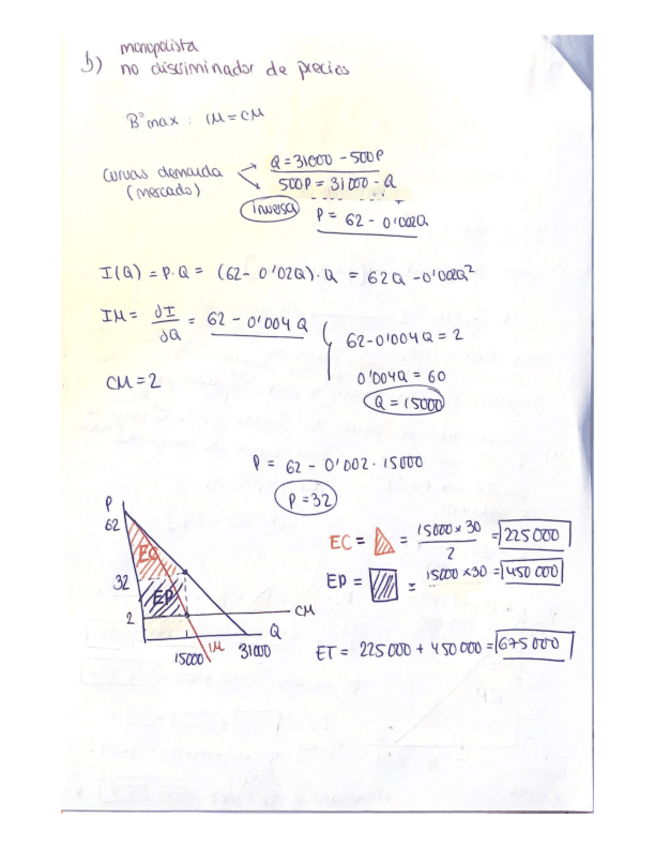 monopolista
b) no discriminador de precios
Bº max : IM = CM
Curvas demanda (mercado)
Q = 31000 - 500P
500P = 31000 - Q
inversa P = 62 - 0'002Q
I(Q) = P·Q = (62 - 0'02Q)·Q = 62Q - 0'002Q²
IM = ∂I/∂Q = 62 - 0'004Q
62 - 0'004Q = 2
CM = 2
0'004Q = 60
Q = 15000
P = 62 - 0'002·15000
P = 32
P
62
EC
32
EP
2
CM
Q
15000 IM 31000
EC = = 15000 x 30 / 2 = 225000
EP = = 15000 x 30 = 450 000
ET = 225000 + 450000 = 675000